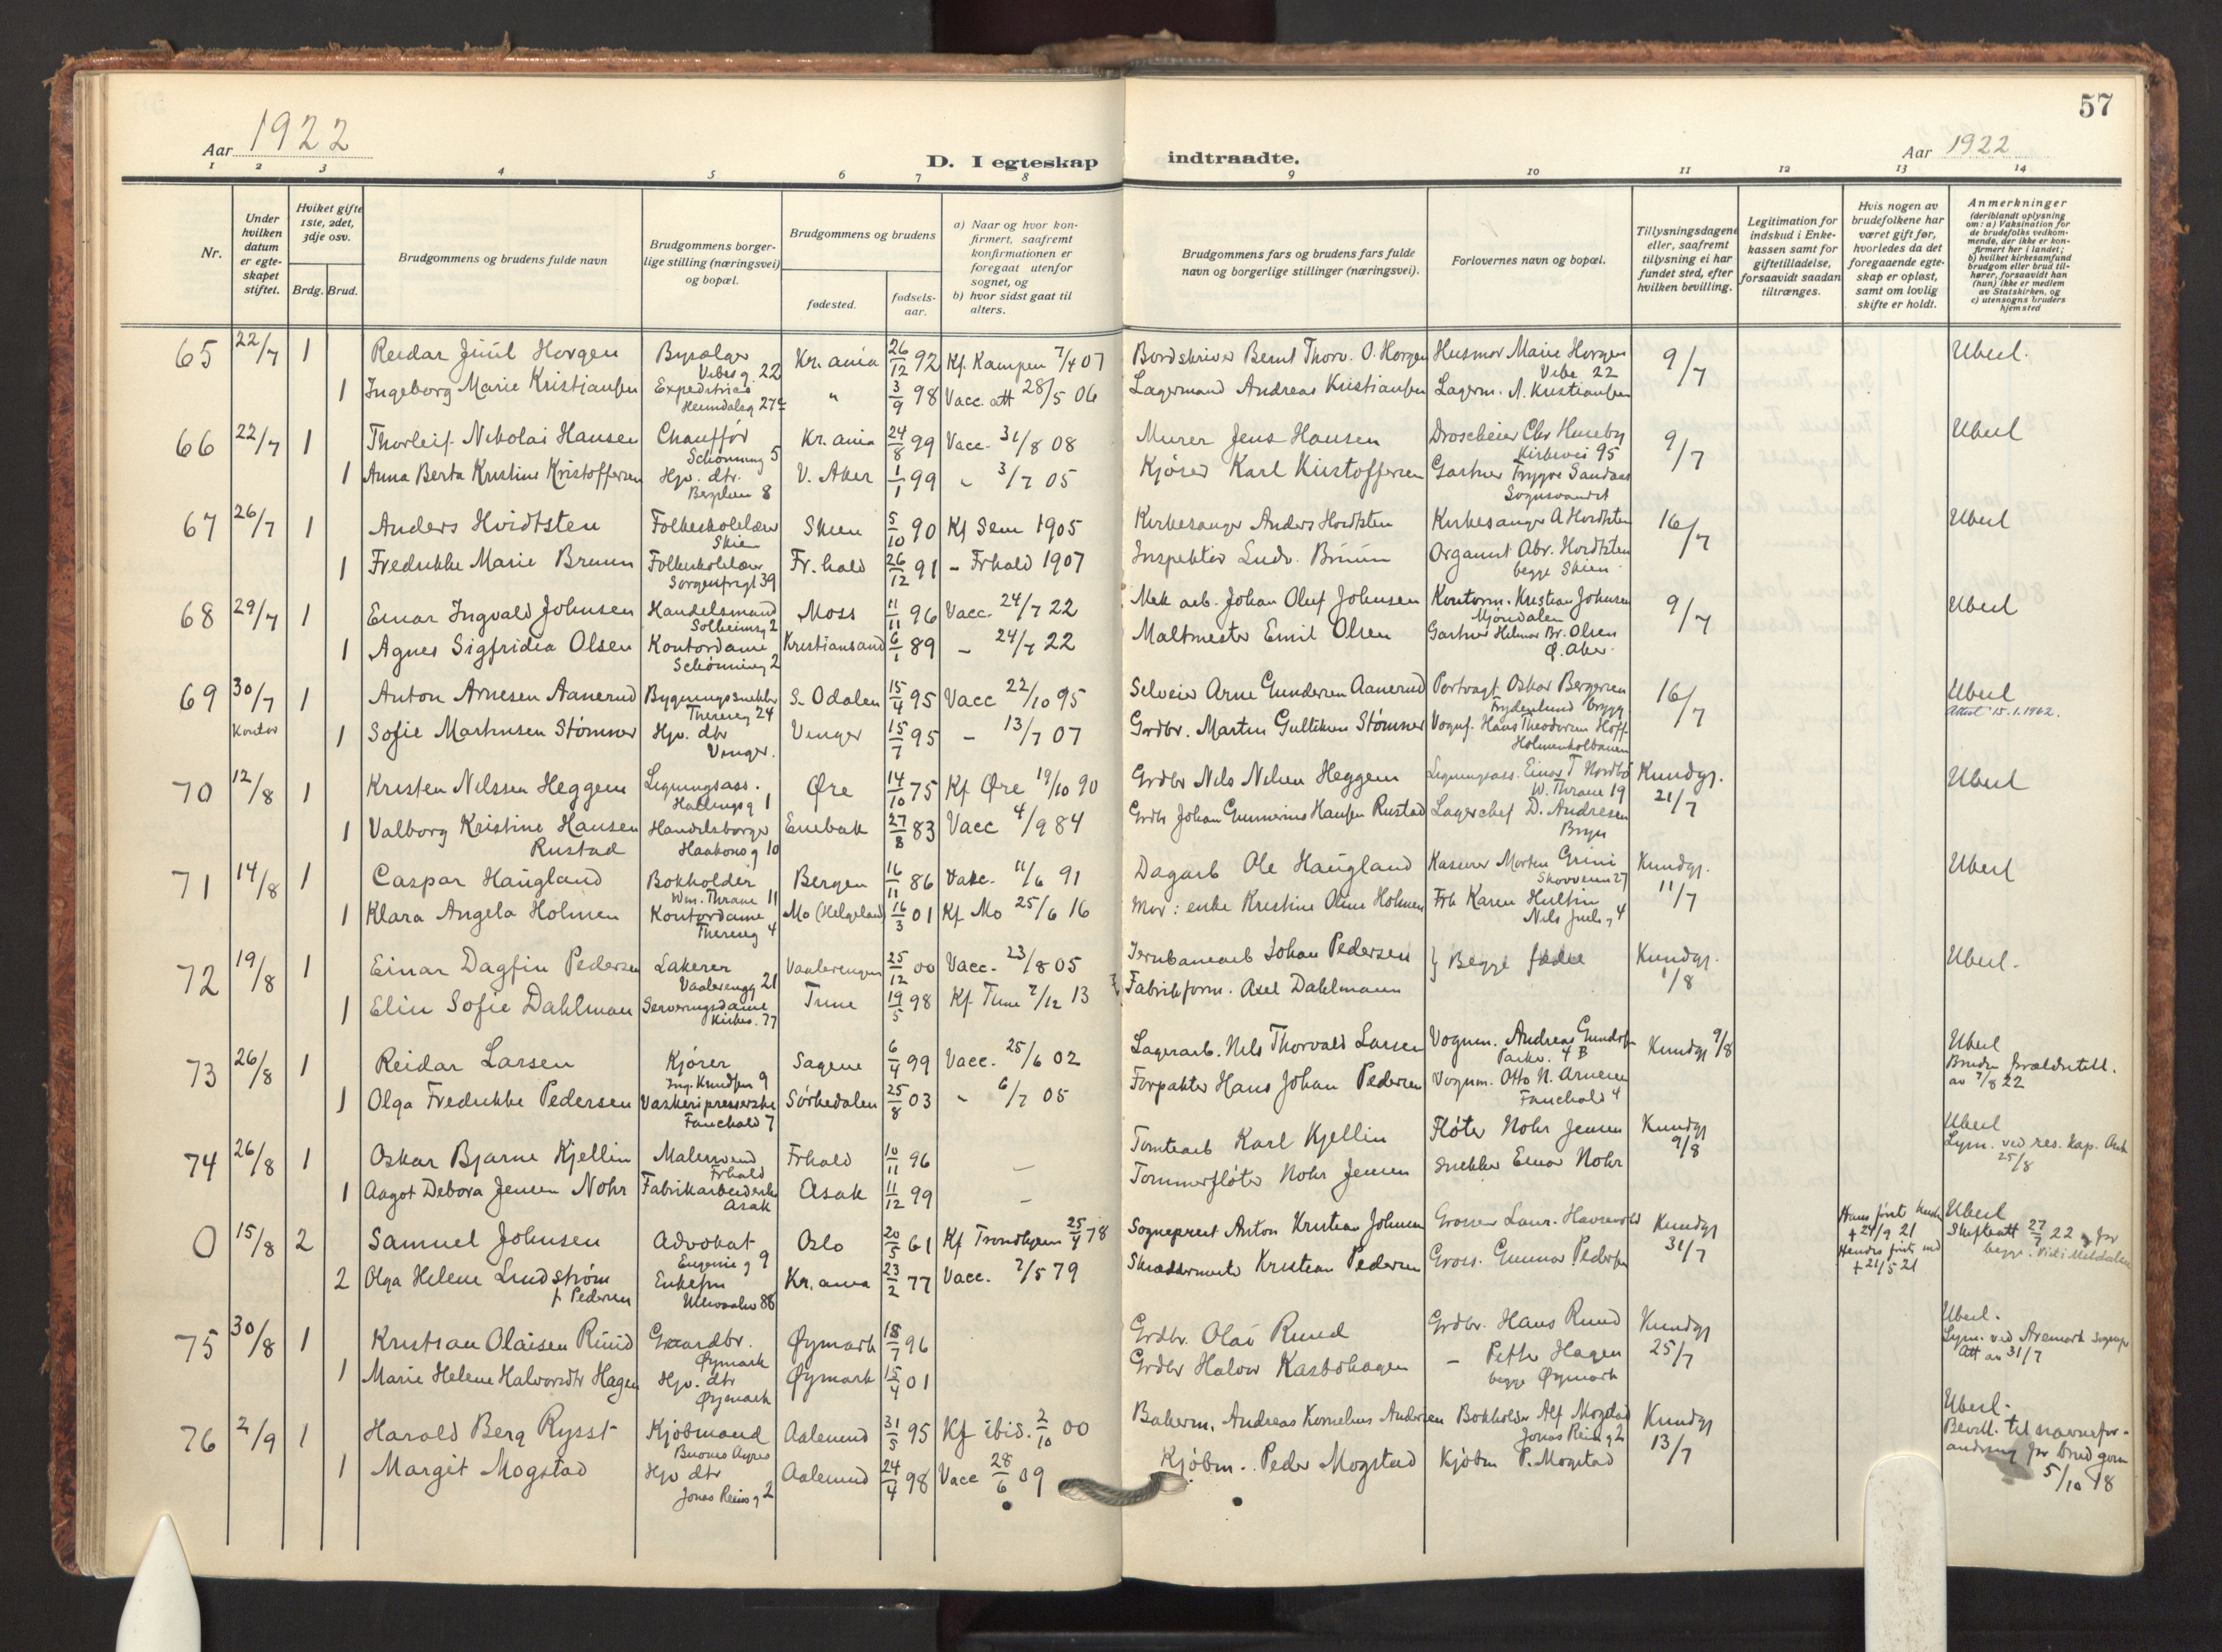 57
Aar 1922
D. I egteskap indtraadte.
Aar 1922
1 2 3 4 5 6 7 8 9 10 11 12 13 14
Nr.
Under hvilken datum er egteskapet stiftet.
Hviket gifte 1ste, 2det, 3dje osv.
Brdg. Brud.
Brudgommens og brudens fulde navn
Brudgommens borgerlige stilling (næringsvei) og bopæl.
Brudgommens og brudens
fødested.
fødselsaar.
a) Naar og hvor konfirmert, saafremt konfirmationen er foregaat utenfor sognet, og
b) hvor sidst gaat til alters.
Brudgommens fars og brudens fars fulde navn og borgerlige stillinger (næringsvei).
Forlovernes navn og bopæl.
Tillysningsdagene eller, saafremt tillysning ei har fundet sted, efter hvilken bevilling.
Legitimation for indskud i Enkekassen samt for giftetilladelse, forsaavidt saadan tiltrænges.
Hvis nogen av brudefolkene har været gift før, hvorledes da det foregaaende egteskap er opløst, samt om lovlig skifte er holdt.
Anmerkninger (deriblandt oplysning om: a) Vaksination for de brudefolks vedkommende, der ikke er konfirmert her i landet; b) hvilket kirkesamfund brudgom eller brud tilhører, forsaavidt han (hun) ikke er medlem av Statskirken, og c) utensogns bruders hjemsted
65 22/7 1 Reidar Juul Horgen Byselger Vibesg. 22 Kr.ania 26/12 92 Kf. Kampen 7/4 07 Bordskriver Bernt Thorv. O. Horgen Husmor Marie Horgen Vibe 22 9/7 Uberl.
1 Ingeborg Marie Kristiansen Expeditrice Heimdalsg 27 " 3/9 98 Vacc. att 28/5 06 Lagermand Andreas Kristiansen Lagerm. A. Kristiansen
66 22/7 1 Thorleif Nikolai Hansen Chauffør Schønning 5 Kr.ania 24/8 99 Vacc. 31/8 08 Murer Jens Hansen Droscheier Chr Huseby Kirkevei 95 9/7 Uberl
1 Anna Berta Kristine Kristoffersen Hjv. dtr. Berglien 8 V. Aker 1/1 99 - 3/7 05 Kjører Karl Kristoffersen Gartner Trygve Sandaas Sognsvandt
67 26/7 1 Anders Hvidtsten Folkeskolelærer Skien Skien 5/10 90 Kf Sem 1905 Kirkesanger Anders Hvidtsten Kirkesanger A Hvidtsten 16/7 Uberl
1 Fredrikke Marie Bruun Folkeskolelærer Sorgenfrigt 39 Fr.hald 26/12 91 - Frhald 1907 Inspektør Ludv. Bruun Organist Abr. Hvidtsten begge Skien
68 29/7 1 Einar Ingvald Johnsen Handelsmand Solheimsg 2 Moss 11/11 96 Vacc. 24/7 22 Mek arb. Johan Oluf Johnsen Kontorm. Kristian Johnsen Mjøndalen 9/7 Uberl
1 Agnes Sigfridia Olsen Kontordame Schønning 2 Kristiansand 6/1 89 - 24/7 22 Maltmester Emil Olsen Gartner Helmer Br. Olsen Ø. Aker.
69 30/7 Kontor 1 Anton Arnesen Aanerud Bygningssnekker Theresg 24 S. Odalen 15/4 95 Vacc 22/10 95 Selveier Arne Gundersen Aanerud Portvagt Oskar Bergersen Frydenlund brygg 16/7 Uberl Attest 15.1.1962.
1 Sofie Martinsen Stømner Hjv. dtr Vinger. Vinger 15/7 95 - 13/7 07 Grdbr. Martin Gulliksen Stømner Vognf. Hans Theodorsen Hoff Holmenkolbanen
70 12/8 1 Kristen Nilssen Heggem Ligningsass. Hallingsg 1 Øre 14/10 75 Kf Øre 19/10 90 Grdbr Nils Nilsen Heggem Ligningsass. Einar T Nordbø W. Thrane 19 Kundgj. 21/7 Uberl
1 Valborg Kristine Hansen Rustad Handelsborger Haakonsg 10 Enebak 27/8 83 Vacc 4/9 84 Grdbr Johan Gunnerius Hansen Rustad Lagerchef D. Andresen Bryn
71 14/8 1 Caspar Haugland Bokholder Wm. Thrane 11 Bergen 16/11 86 Vakc. 11/6 91 Dagarb Ole Haugland Kasserer Morten Grini Skovveien 27 Kundgj. 11/7 Uberl
1 Klara Angela Holmen Kontordame Theresg 4 Mo (Helgeland) 16/3 01 Kf Mo 25/6 16 Mor: enke Kristine Oline Holmen Frk Karen Hultin Nils Juels g 4
72 19/8 1 Einar Dagfin Pedersen Lakerer Vaalerengg 21 Vaalerengen 25/12 00 Vacc. 23/8 05 Jernbanearb Johan Pedersen } Begge fædre Kundgj. 1/8 Uberl.
1 Elin Sofie Dahlman Serveringsdame Kirkev. 77 Tune 19/5 98 Kf Tune 7/12 13 Fabrikform. Axel Dahlmann
73 26/8 1 Reidar Larsen Kjører Ing. Knudsen 9 Sagene 6/4 99 Vacc. 25/6 02 Lagerarb. Nils Thorvald Larsen Vognm. Andreas Gundersen Parkv. 4 B Kundgj 9/8 Uberl Bruden forældretill. av 7/8 22
1 Olga Fredrikke Pedersen Vaskeripresserske Fauchald 7 Sørkedalen 25/8 03 - 6/7 05 Forpakter Hans Johan Pedersen Vognm. Otto N. Arnesen Fauchald 4
74 26/8 1 Oskar Bjarne Kjellin Malersvend Frhald Frhald 10/11 96 — Tomtearb Karl Kjellin Fløter Nohr Jensen Kundgj 9/8 Uberl Lysn. ved res. kap. Ank 25/8
1 Aagot Debora Jensen Nohr Fabrikarbeiderske Asak Asak 11/12 99 - Tømmerfløter Nohr Jensen Snekker Einar Nohr
0 15/8 2 Samuel Johnsen Advokat Eugenie g 9 Oslo 20/5 61 Kf Trondhjem 25/4 78 Sogneprest Anton Kristian Johnsen Grosserer Laur. Havrevold Kundgj 31/7 Hans første hustru + 24/9 21 Hendes første md + 21/5 21 Uberl Skifteatt 27/7 22 for begge.
2 Olga Helene Lindstrøm f. Pedersen Enkefru Ullevaalsv 88 Kr.ania 23/2 77 Vacc. 7/5 79 Skræddermester Kristian Pedersen Gross. Gunnar Pedersen
75 30/8 1 Kristian Olaisen Ruud Gaardbr. Øymark Øymark 18/7 96 Grdbr. Olai Ruud Grdbr. Hans Ruud Kundgj 25/7 Uberl. Lysn. ved Aremark Sognepr Att av 31/7
1 Marie Helene Halvorsdtr Hagen Hjv. dtr Øymark Øymark 15/4 01 Grdbr Halvor Kasbohagen - Petter Hagen begge Øymark
76 2/9 1 Harald Berg Rysst Kjøbmand Buenos Ayres Aalesund 31/5 95 Kf ibid. 2/10 00 Bakerm. Andreas Kornelius Andersen Bokholder Alf Mogstad Jonas Reins g 2 Kundgj 13/7 Uberl. Bevill. til navneforandring for brudgom 5/10 18
1 Margit Mogstad Hjv dtr Jonas Reins g 2 Aalesund 24/4 98 Vacc 28/6 09 Kjøbm. Peder Mogstad Kjøbm P. Mogstad